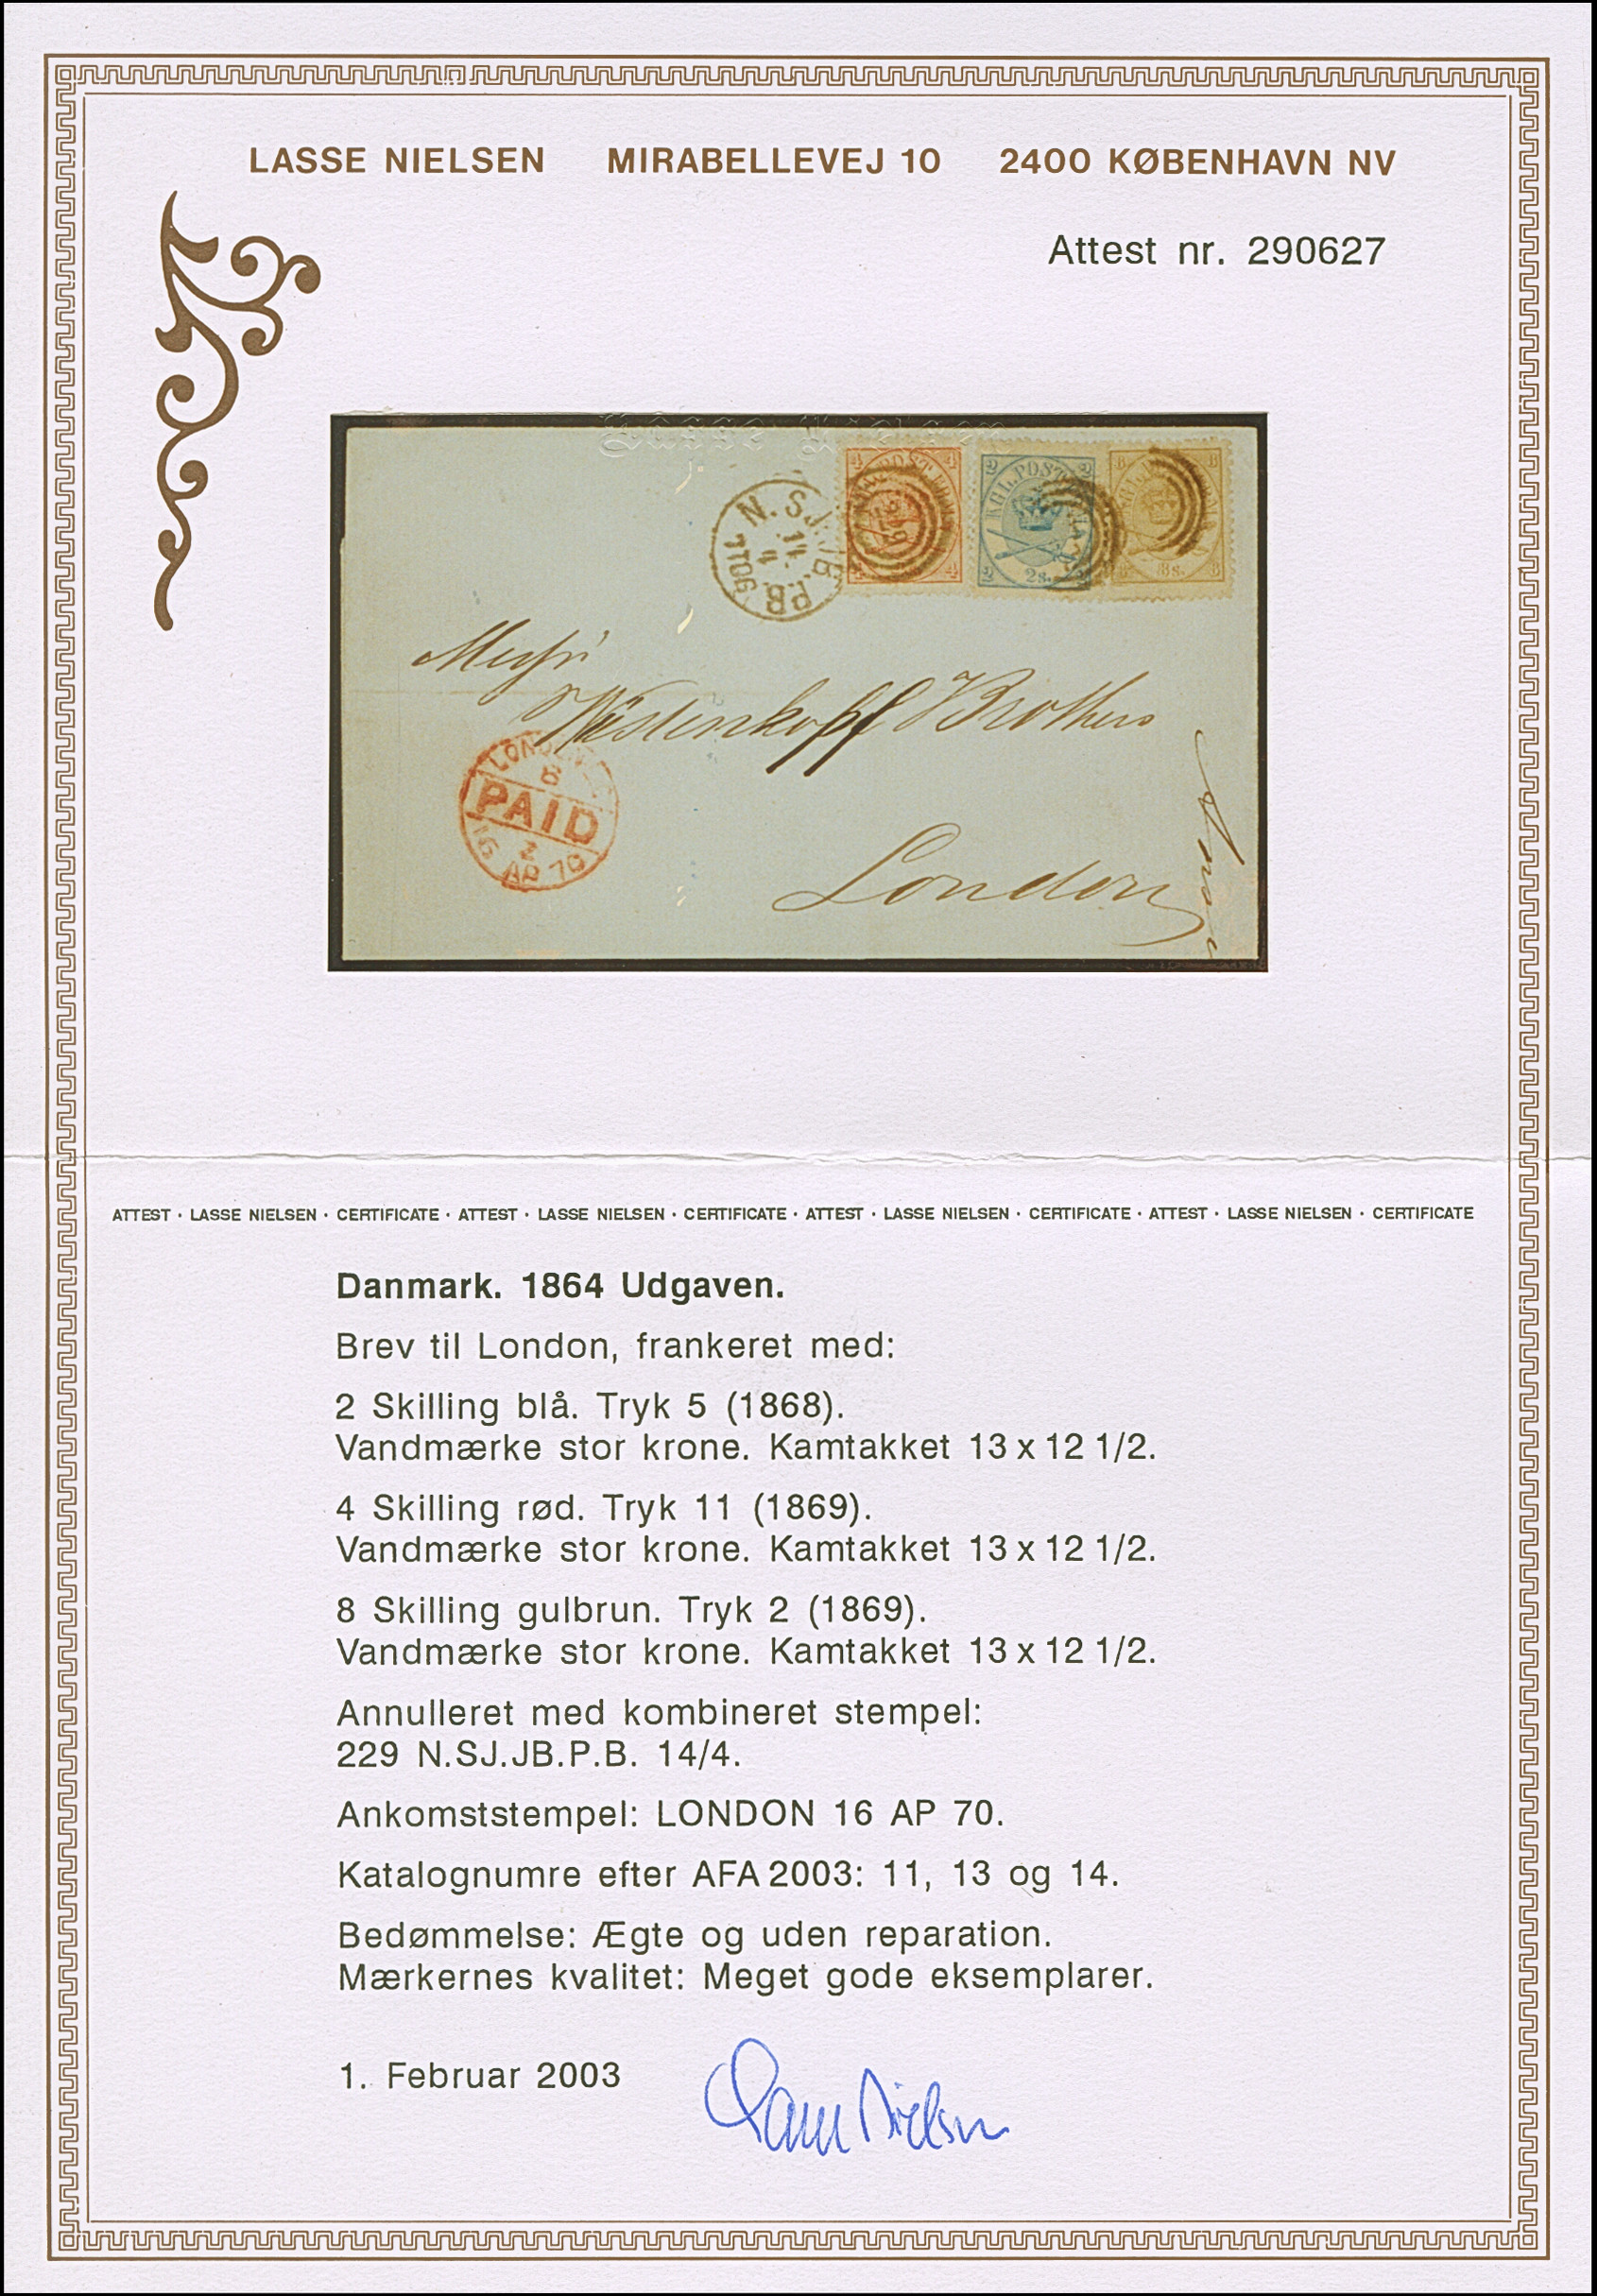 LASSE NIELSEN MIRABELLEVEJ 10 2400 KØBENHAVN NV
Attest nr. 290627
Lasse Nielsen
4 KGL. POST 4
4 4
2 KGL. POST 2
2 2s. 2
8 8
8 8s. 8
N. SJ. JB. P.B.
14
4
7TOG
Messrs
Westenkopff Brothers
London
LONDON
6
PAID
Z
16 AP 70
ATTEST · LASSE NIELSEN · CERTIFICATE · ATTEST · LASSE NIELSEN · CERTIFICATE · ATTEST · LASSE NIELSEN · CERTIFICATE · ATTEST · LASSE NIELSEN · CERTIFICATE
Danmark. 1864 Udgaven.
Brev til London, frankeret med:
2 Skilling blå. Tryk 5 (1868).
Vandmærke stor krone. Kamtakket 13 x 12 1/2.
4 Skilling rød. Tryk 11 (1869).
Vandmærke stor krone. Kamtakket 13 x 12 1/2.
8 Skilling gulbrun. Tryk 2 (1869).
Vandmærke stor krone. Kamtakket 13 x 12 1/2.
Annulleret med kombineret stempel:
229 N.SJ.JB.P.B. 14/4.
Ankomststempel: LONDON 16 AP 70.
Katalognumre efter AFA 2003: 11, 13 og 14.
Bedømmelse: Ægte og uden reparation.
Mærkernes kvalitet: Meget gode eksemplarer.
1. Februar 2003
Lasse Nielsen